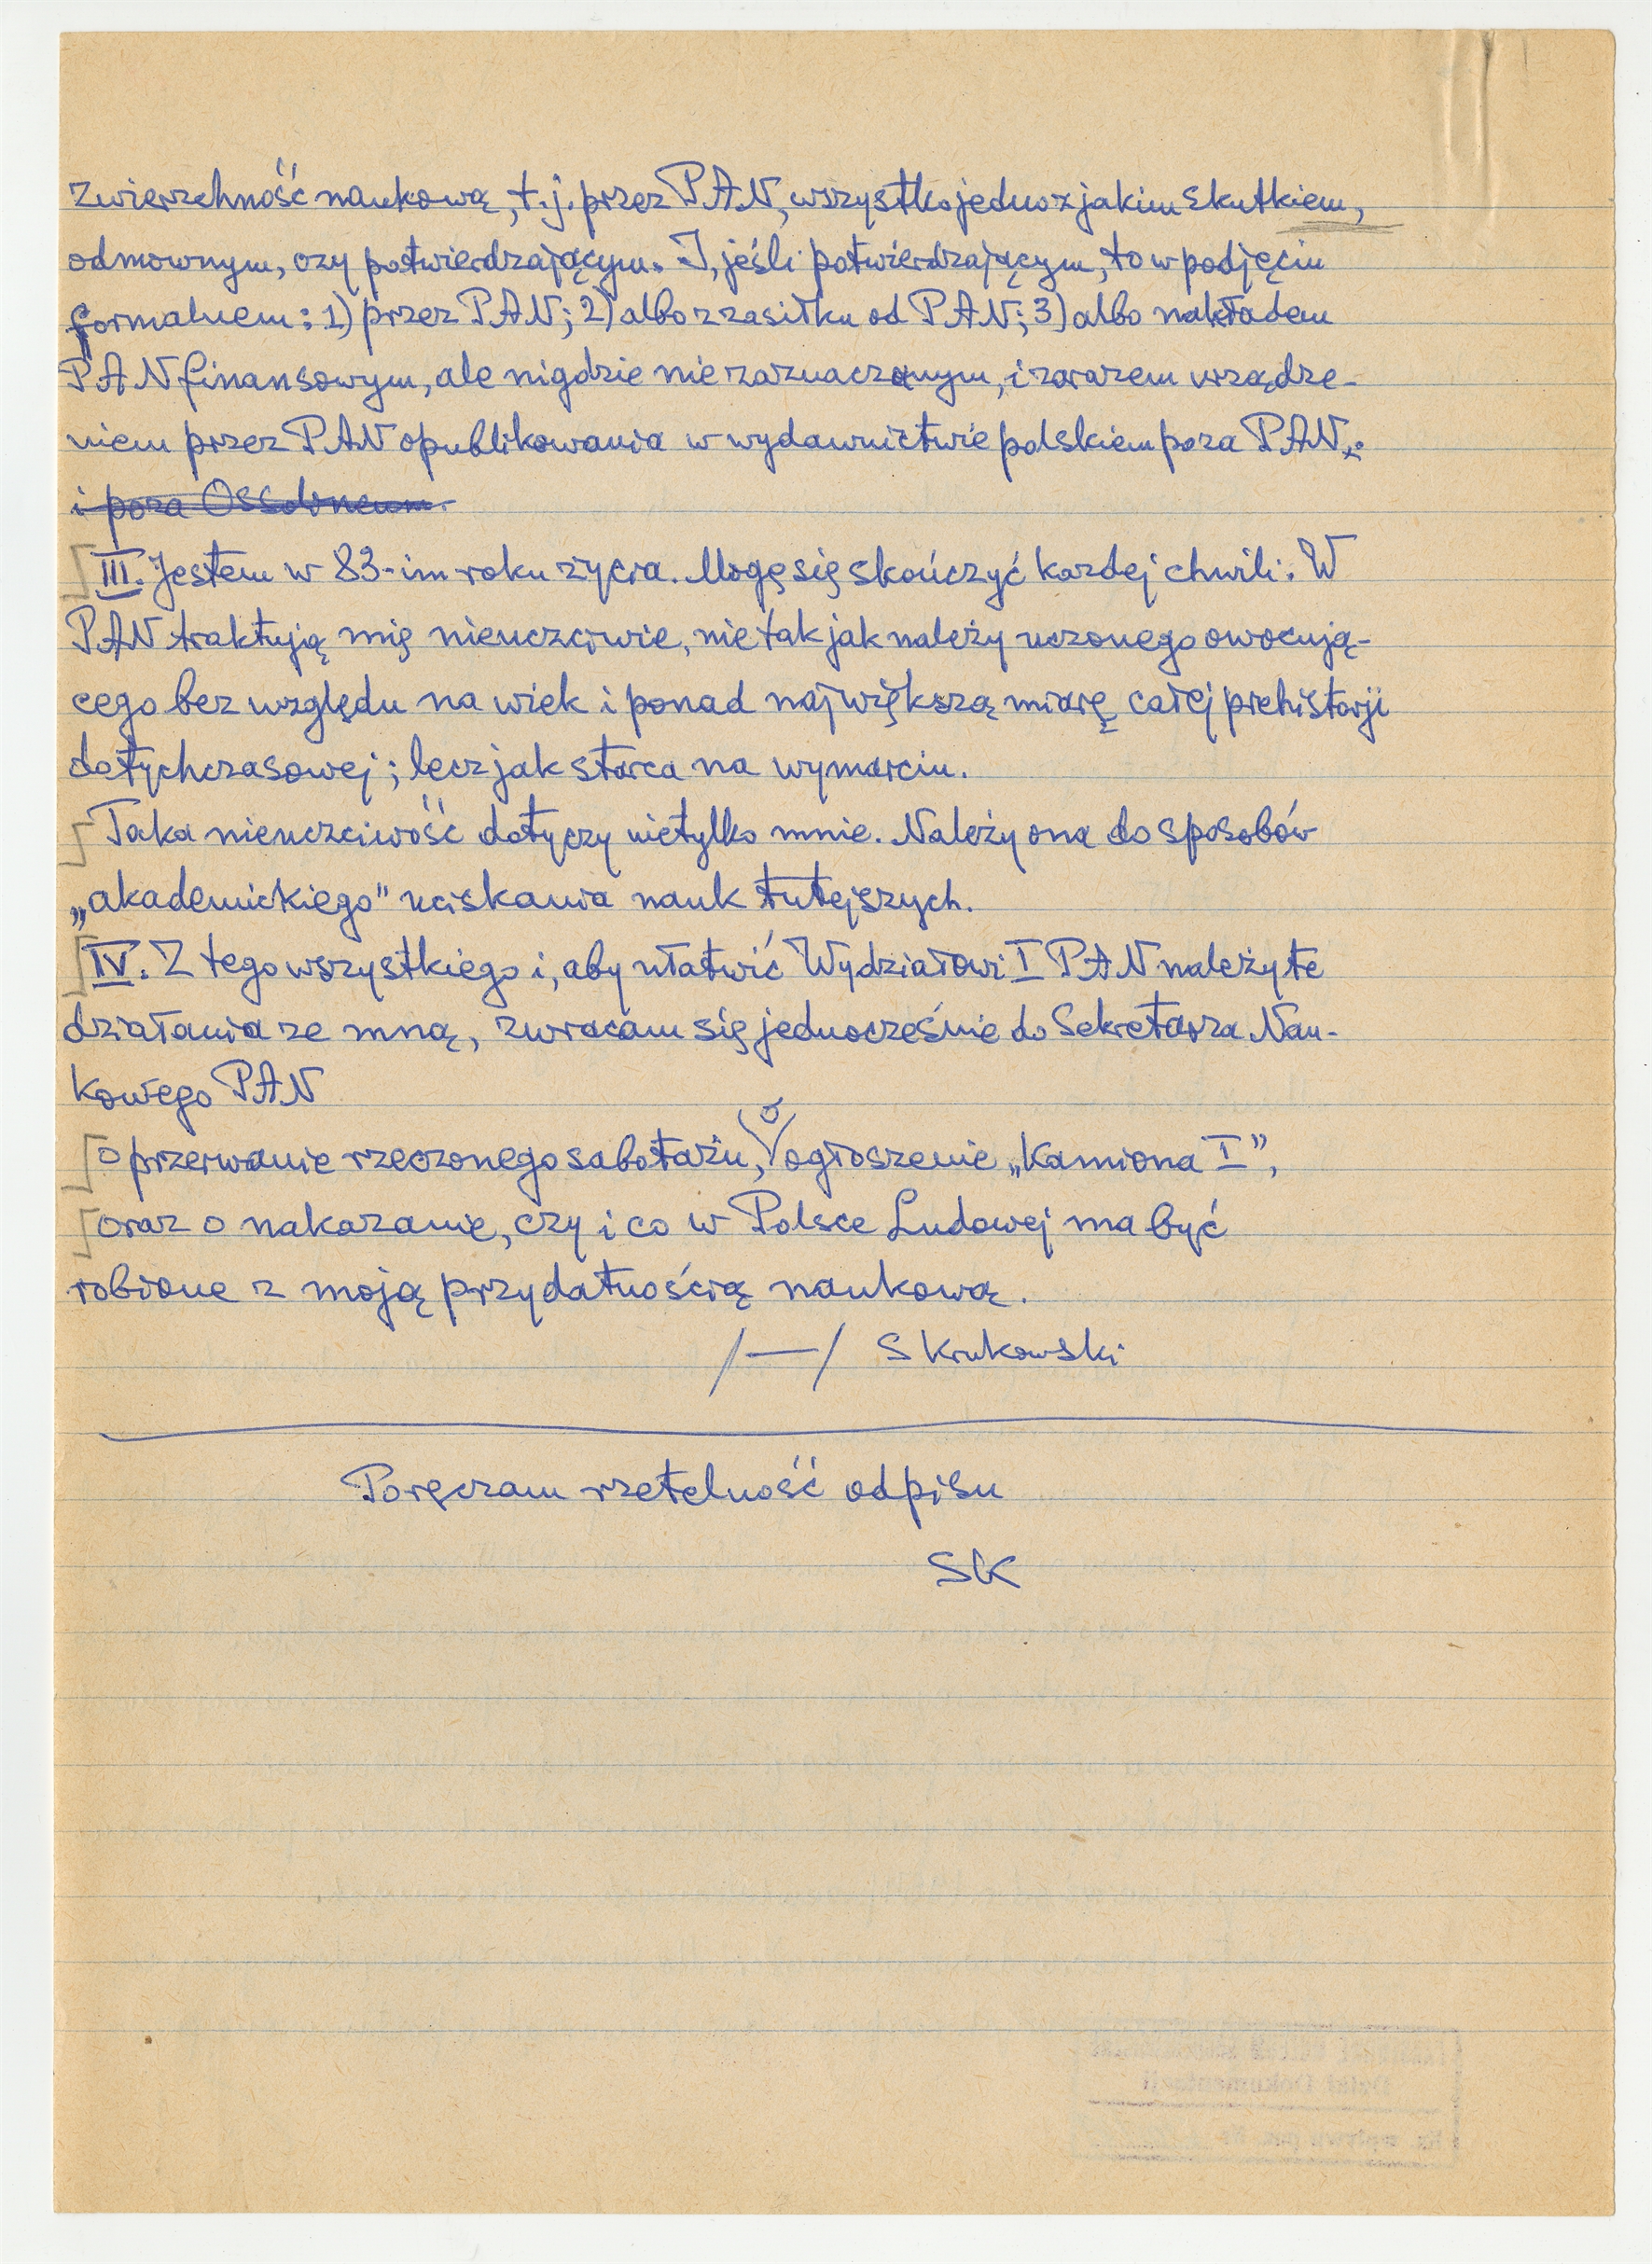 Zwierzchność naukową, t.j. przez PAN, wszystko jedno z jakim skutkiem,
odmownym, czy potwierdzającym. I, jeśli potwierdzającym, to w podjęciu
formalnem: 1) przez PAN; 2) albo z zasiłku od PAN; 3) albo nakładem
PAN finansowym, ale nigdzie nie zaznaczonym, i zarazem urządze-
niem przez PAN opublikowania w wydawnictwie polskiem poza PAN.
i poza Ossolineum.
III. Jestem w 83-im roku życia. Mogę się skończyć każdej chwili. W
PAN traktują mię nieuczciwie, nie tak jak należy uczonego owocują-
cego bez względu na wiek i ponad największą miarę całej prehistorji
dotychczasowej; lecz jak starca na wymarciu.
Taka nieuczciwość dotyczy nietylko mnie. Należy ona do sposobów
„akademickiego" uciskania nauk tutejszych.
IV. Z tego wszystkiego i, aby ułatwić Wydziałowi I PAN należyte
działania ze mną, zwracam się jednocześnie do Sekretarza Nau-
kowego PAN
o przerwanie rzeczonego sabotażu, o ogłoszenie „Kamiona I”,
oraz o nakazanie, czy i co w Polsce Ludowej ma być
robione z moją przydatnością naukową.
/—/ S Krukowski
Poręczam rzetelność odpisu
SK